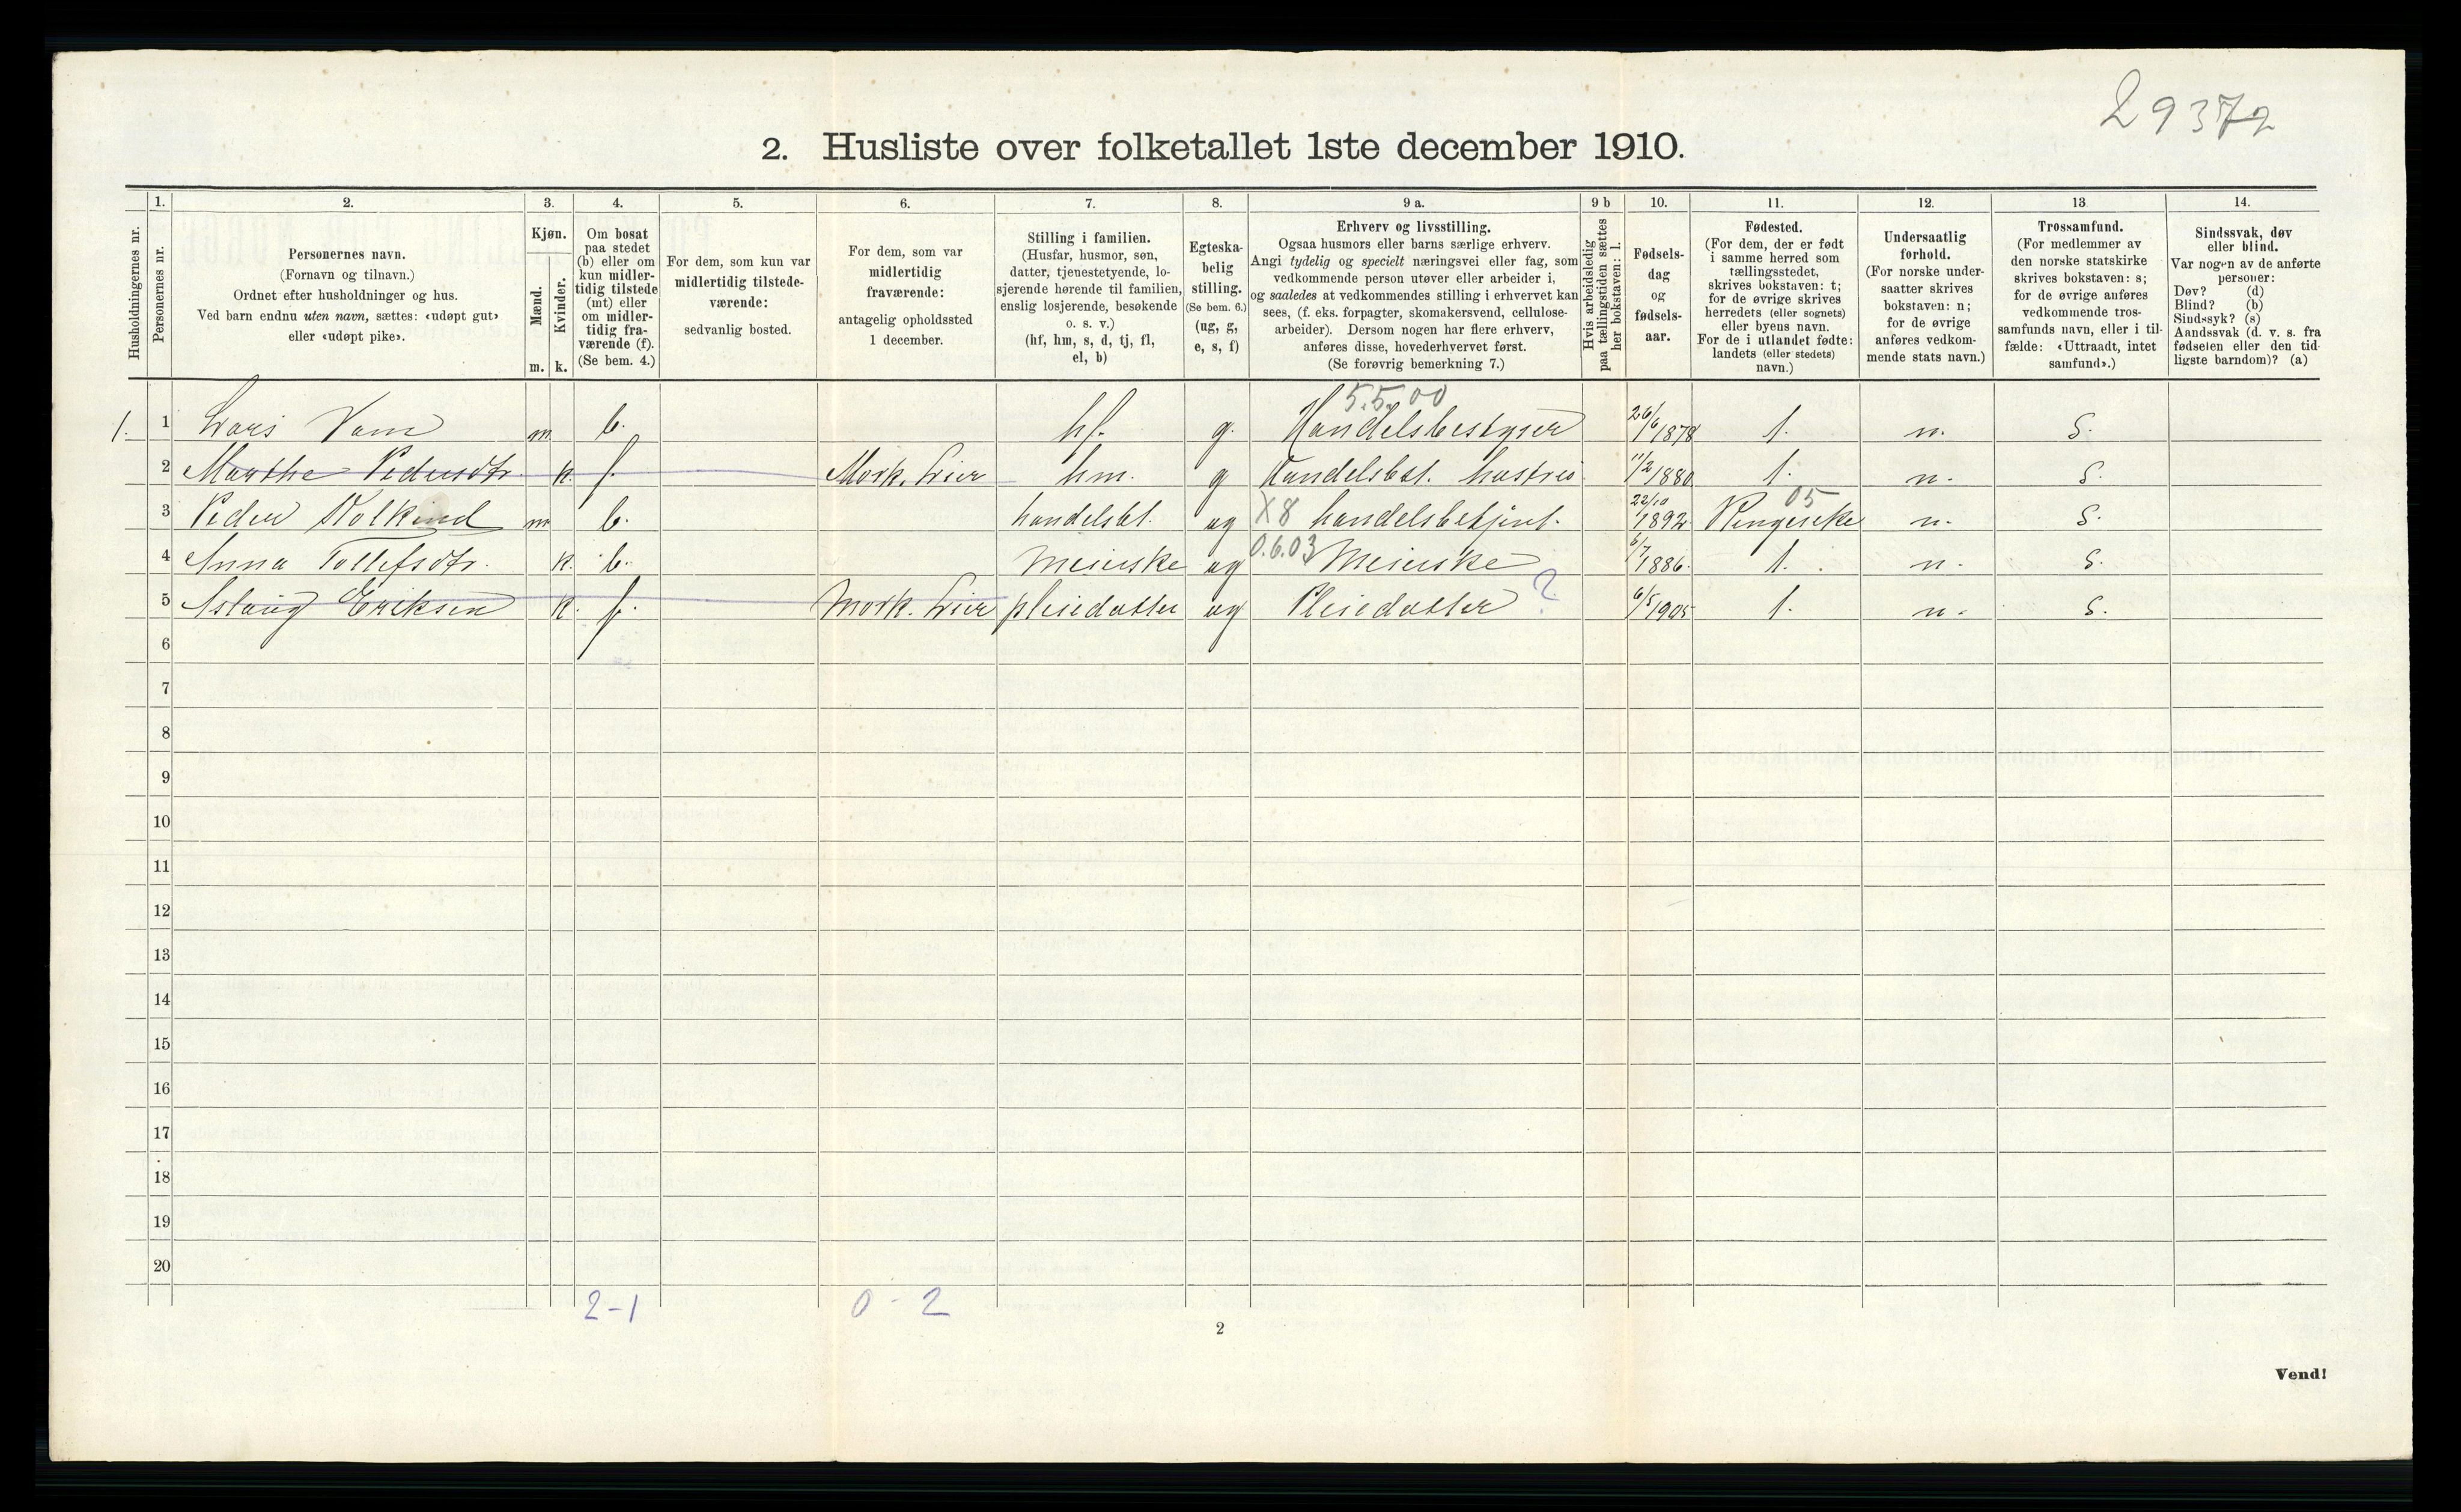 29372
2. Husliste over folketallet 1ste december 1910.
Husholdningernes nr.
1.
Personernes nr.
2.
Personernes navn.
(Fornavn og tilnavn.)
Ordnet efter husholdninger og hus.
Ved barn endnu uten navn, sættes: «udøpt gut»
eller «udøpt pike».
3.
Kjøn.
Mænd.
Kvinder.
m. k.
4.
Om bosat
paa stedet
(b) eller om
kun midler-
tidig tilstede
(mt) eller
om midler-
tidig fra-
værende (f).
(Se bem. 4.)
5.
For dem, som kun var
midlertidig tilstede-
værende:
sedvanlig bosted.
6.
For dem, som var
midlertidig
fraværende:
antagelig opholdssted
1 december.
7.
Stilling i familien.
(Husfar, husmor, søn,
datter, tjenestetyende, lo-
sjerende hørende til familien,
enslig losjerende, besøkende
o. s. v.)
(hf, hm, s, d, tj, fl,
el, b)
8.
Egteska-
belig
stilling.
(Se bem. 6.)
(ug, g,
e, s, f)
9 a.
Erhverv og livsstilling.
Ogsaa husmors eller barns særlige erhverv.
Angi tydelig og specielt næringsvei eller fag, som
vedkommende person utøver eller arbeider i,
og saaledes at vedkommendes stilling i erhvervet kan
sees, (f. eks. forpagter, skomakersvend, cellulose-
arbeider). Dersom nogen har flere erhverv,
anføres disse, hovederhvervet først.
(Se forøvrig bemerkning 7.)
9 b
Hvis arbeidsledig
paa tællingstiden sættes
her bokstaven: l.
10.
Fødsels-
dag
og
fødsels-
aar.
11.
Fødested.
(For dem, der er født
i samme herred som
tællingsstedet,
skrives bokstaven: t;
for de øvrige skrives
herredets (eller sognets)
eller byens navn.
For de i utlandet fødte:
landets (eller stedets)
navn.)
12.
Undersaatlig
forhold.
(For norske under-
saatter skrives
bokstaven: n;
for de øvrige
anføres vedkom-
mende stats navn.)
13
Trossamfund.
(For medlemmer av
den norske statskirke
skrives bokstaven: s;
for de øvrige anføres
vedkommende tros-
samfunds navn, eller i til-
fælde: «Uttraadt, intet
samfund».)
14.
Sindssvak, døv
eller blind.
Var nogen av de anførte
personer:
Døv? (d)
Blind? (b)
Sindssyk? (s)
Aandssvak (d. v. s. fra
fødselen eller den tid-
ligste barndom)? (a)
5.5.00
1. 1 Lars Vam m b. hf. g. Handelsbestyrer 26/6 1878 t. n. S.
2 Marthe Pedersdtr. k. f. Mork. Lier hm. g Handelsbest. hustru 11/2 1880 t. n. S.
05
3 Peder m b. handelsbt. ug X8 handelsbetjent. 22/10 1892 Ringerike n. S.
4 Anna Tollefsdtr. k. b. Meierske ug 0.6.03 Meierske 6/7 1886. t. n. S.
5 Aslaug Eriksen k. f. Mork. Lier pleiedatter ug Pleiedatter ? 6/5 1905 t. n. S.
6
7
8
9
10
11
12
13
14
15
16
17
18
19
20
2-1 0-2
2
Vend!